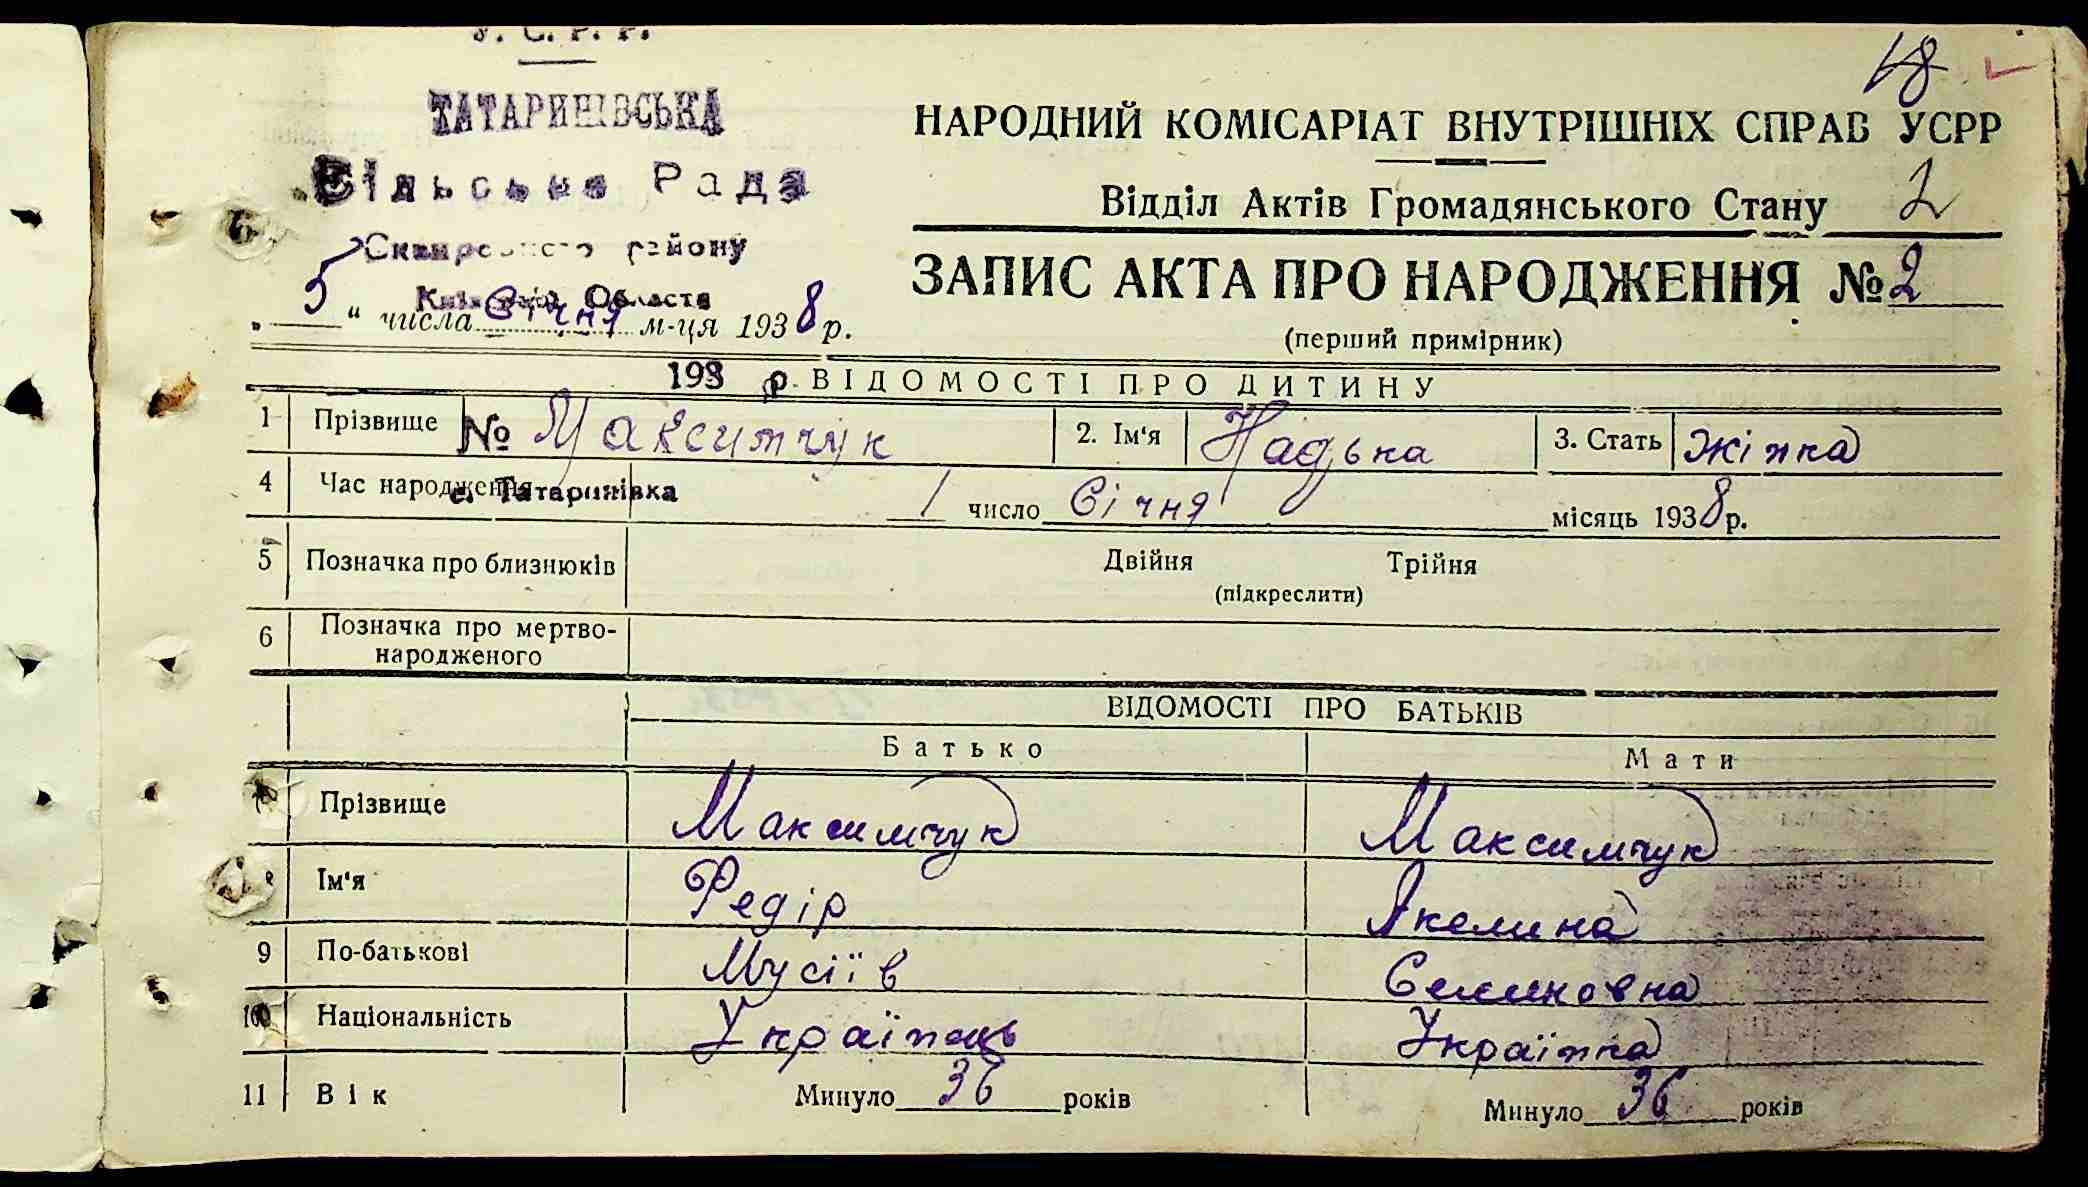 У. С. Р. Р.
ТАТАРИНІВСЬКА
Сільська Рада
Сквирського району
Київської Області
18
НАРОДНИЙ КОМІСАРІАТ ВНУТРІШНІХ СПРАВ УСРР
Відділ Актів Громадянського Стану 2
ЗАПИС АКТА ПРО НАРОДЖЕННЯ № 2
(перший примірник)
„ 5 “ числа Січня м-ця 1938 р.
193 р.
ВІДОМОСТІ ПРО ДИТИНУ
1 Прізвище № Максимчук 2. Ім'я Надька 3. Стать жінка
4 Час народження с. Татаринівка 1 число Січня місяць 1938 р.
5 Позначка про близнюків Двійня Трійня
(підкреслити)
6 Позначка про мертво-
народженого
ВІДОМОСТІ ПРО БАТЬКІВ
Батько Мати
7 Прізвище Максимчук Максимчук
8 Ім'я Федір Якелина
9 По-батькові Мусіїв Семеновна
10 Національність Українець Українка
11 Вік Минуло 36 років Минуло 36 років